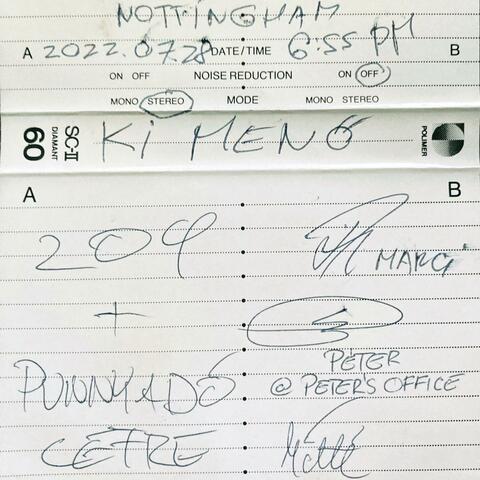 NOTTINGHAM
A 2022.07.28 DATE/TIME 6:55 PM B
ON OFF NOISE REDUCTION ON OFF
MONO STEREO MODE MONO STEREO
60 DIAMANT SC-II KI MENŐ POLIMER
A B
204 MARGI
+
PETER
PUNNYADÓ @ PETER'S OFFICE
CETRE MÁTÉ